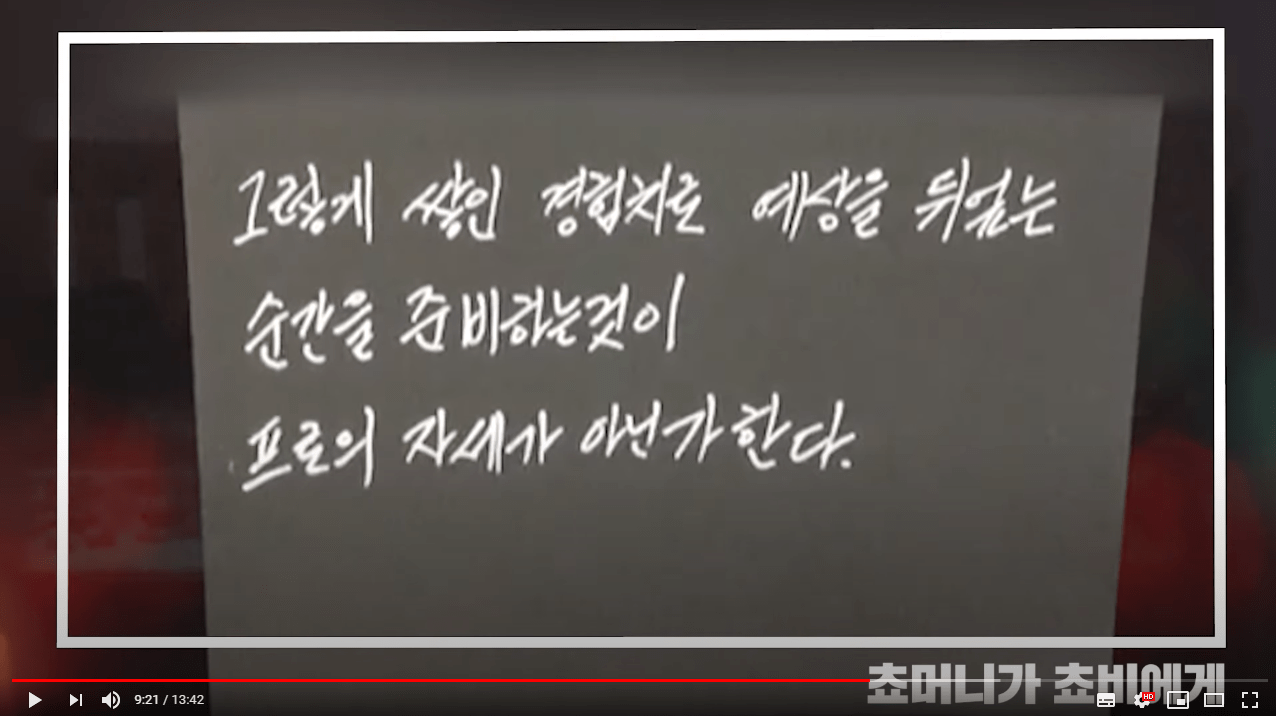 그렇게 쌓인 경험치로 예상을 뒤엎는
순간을 준비하는것이
프로의 자세가 아닌가 한다.
쵸머니가 쵸비에게
9:21 / 13:42
HD